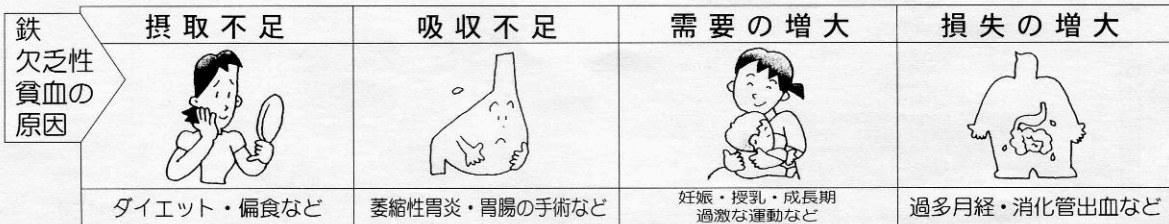 鉄
欠乏性
貧血の
原因
摂取不足
吸収不足
需要の増大
損失の増大
ダイエット・偏食など
萎縮性胃炎・胃腸の手術など
妊娠・授乳・成長期
過激な運動など
過多月経・消化管出血など